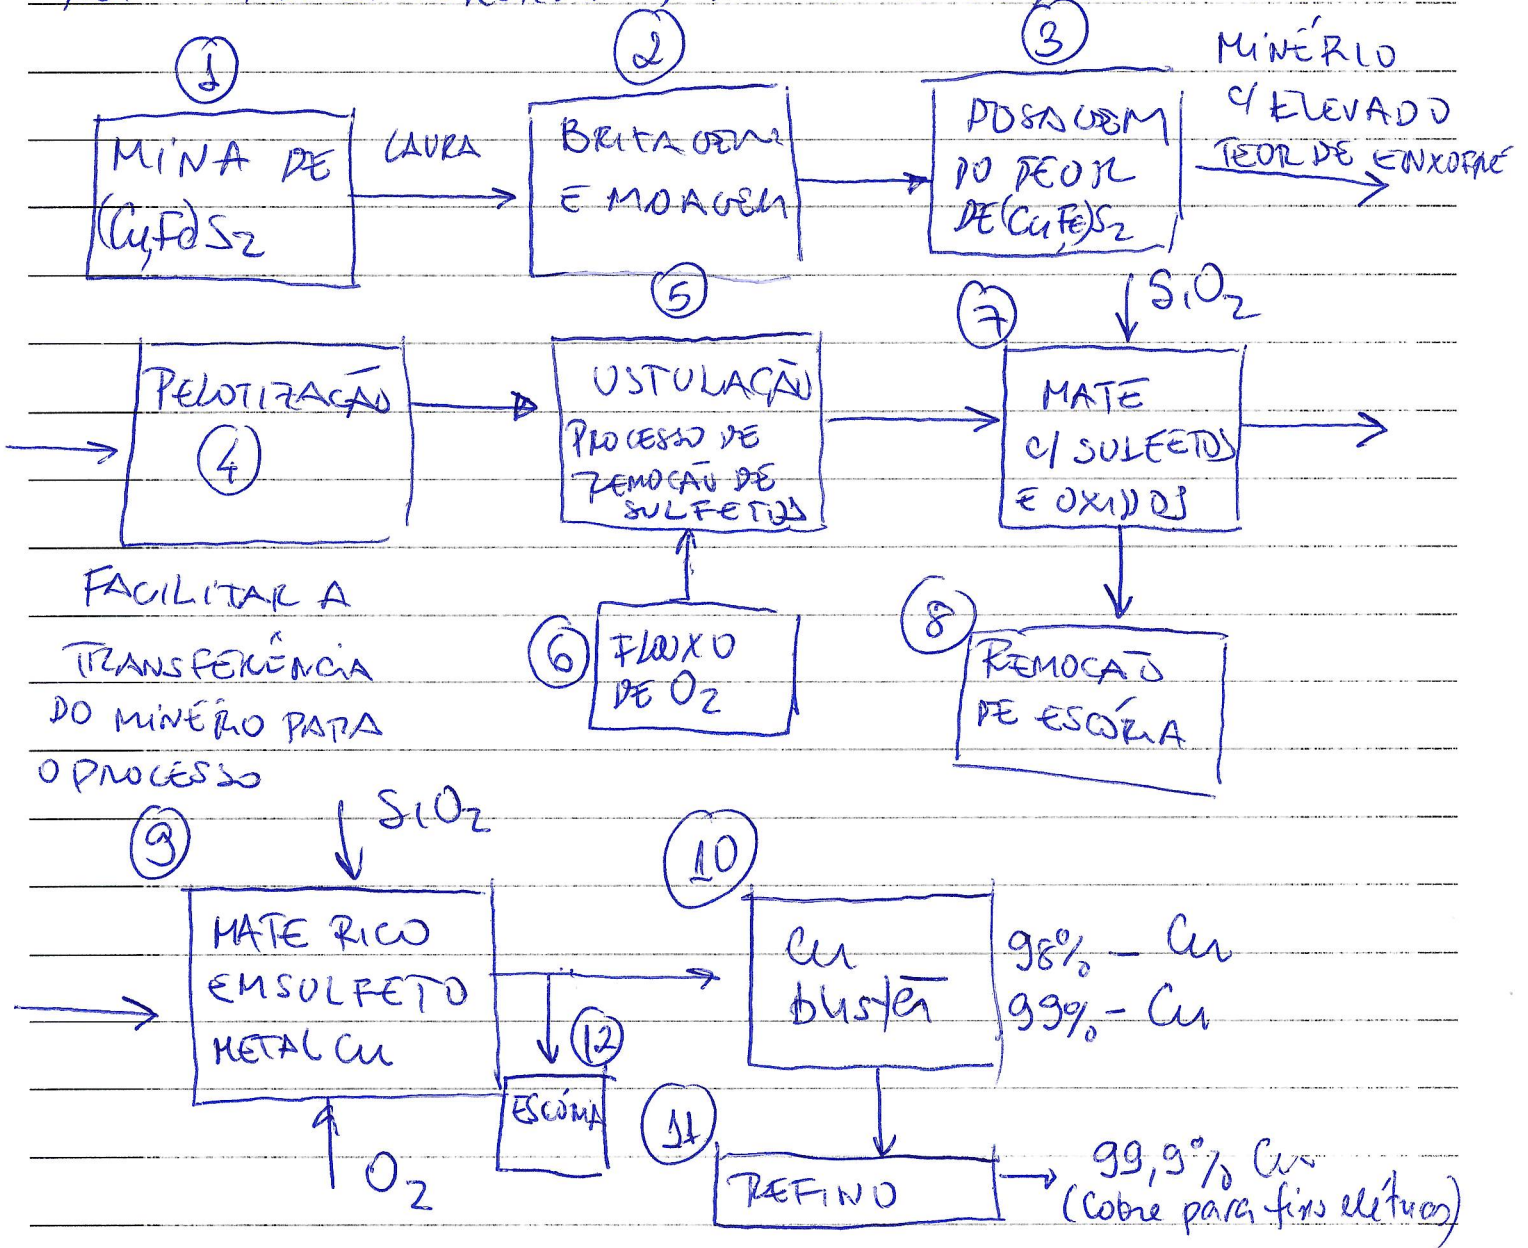 1
MINA DE
(Cu,Fe)S2
LAVRA
2
BRITAGEM
E MOAGEM
3
DOSAGEM
DO TEOR
DE(Cu,Fe)S2
MINÉRIO
C/ ELEVADO
TEOR DE ENXOFRE
PELOTIZAÇÃO
4
FACILITAR A
TRANSFERÊNCIA
DO MINÉRIO PARA
O PROCESSO
5
USTULAÇÃO
PROCESSO DE
REMOÇÃO DE
SULFETOS
6
FLUXO
DE O2
7
SiO2
MATE
C/ SULFETOS
E OXIDOS
8
REMOCÃO
DE ESCÓRIA
9
SiO2
MATE RICO
EM SULFETO
METAL Cu
O2
12
ESCÓRIA
10
Cu
blister
98% - Cu
99% - Cu
11
REFINO
99,9% Cu
(Cobre para fins elétricos)